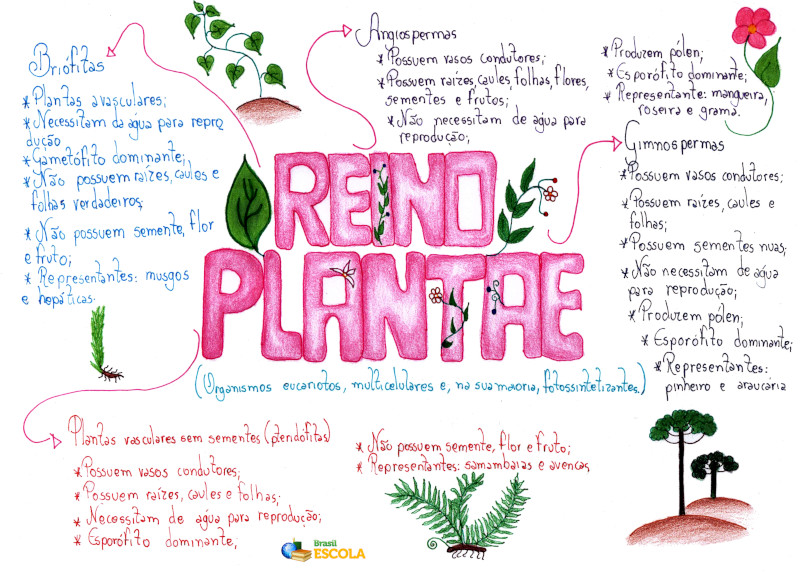 Briófitas
* Plantas avasculares;
* Necessitam da água para repro
dução
* Gametófito dominante;
* Não possuem raízes, caules e
folhas verdadeiros;
* Não possuem semente, flor
e fruto;
* Representantes: musgos
e hepáticas.
Angiospermas
* Possuem vasos condutores;
* Possuem raízes, caules, folhas, flores,
sementes e frutos;
* Não necessitam de água para
reprodução;
* Produzem pólen;
* Esporófito dominante;
* Representante: mangueira,
roseira e grama.
REINO
PLANTAE
(Organismos eucariotos, multicelulares e, na sua maioria, fotossintetizantes.)
Gimnospermas
* Possuem vasos condutores;
* Possuem raízes, caules e
folhas;
* Possuem sementes nuas;
* Não necessitam de água
para reprodução;
* Produzem pólen;
* Esporófito dominante;
* Representantes:
pinheiro e araucária
Plantas vasculares sem sementes (pteridófitas)
* Possuem vasos condutores;
* Possuem raízes, caules e folhas;
* Necessitam de água para reprodução;
* Esporófito dominante;
* Não possuem semente, flor e fruto;
* Representantes: samambaias e avencas
Brasil
ESCOLA